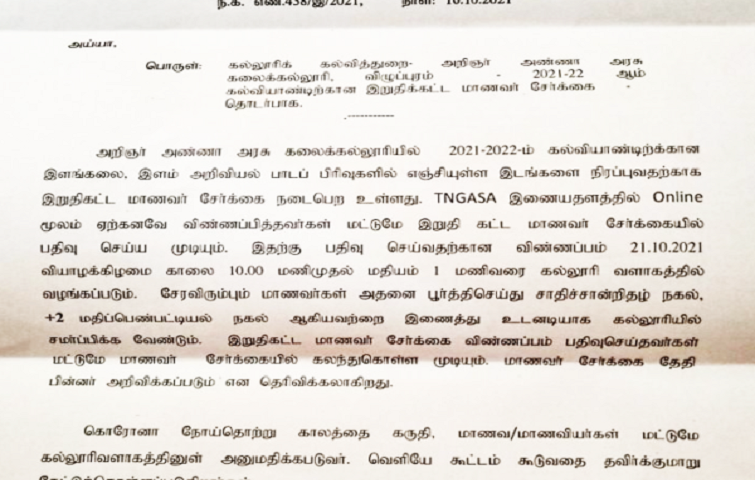 ந.க. எண்.438/இ/2021, நாள்: 10.10.2021
அய்யா,
பொருள்: கல்லூரிக் கல்வித்துறை- அறிஞர் அண்ணா அரசு
கலைக்கல்லூரி, விழுப்புரம் - 2021-22 ஆம்
கல்வியாண்டிற்கான இறுதிக்கட்ட மாணவர் சேர்க்கை -
தொடர்பாக.
-----------
அறிஞர் அண்ணா அரசு கலைக்கல்லூரியில் 2021-2022-ம் கல்வியாண்டிற்க்கான
இளங்கலை, இளம் அறிவியல் பாடப் பிரிவுகளில் எஞ்சியுள்ள இடங்களை நிரப்புவதற்காக
இறுதிகட்ட மாணவர் சேர்க்கை நடைபெற உள்ளது. TNGASA இணையதளத்தில் Online
மூலம் ஏற்கனவே விண்ணப்பித்தவர்கள் மட்டுமே இறுதி கட்ட மாணவர் சேர்க்கையில்
பதிவு செய்ய முடியும். இதற்கு பதிவு செய்வதற்கான விண்ணப்பம் 21.10.2021
வியாழக்கிழமை காலை 10.00 மணிமுதல் மதியம் 1 மணிவரை கல்லூரி வளாகத்தில்
வழங்கப்படும். சேரவிரும்பும் மாணவர்கள் அதனை பூர்த்திசெய்து சாதிச்சான்றிதழ் நகல்,
+2 மதிப்பெண்பட்டியல் நகல் ஆகியவற்றை இணைத்து உடனடியாக கல்லூரியில்
சமர்ப்பிக்க வேண்டும். இறுதிகட்ட மாணவர் சேர்க்கை விண்ணப்பம் பதிவுசெய்தவர்கள்
மட்டுமே மாணவர் சேர்க்கையில் கலந்துகொள்ள முடியும். மாணவர் சேர்க்கை தேதி
பின்னர் அறிவிக்கப்படும் என தெரிவிக்கலாகிறது.
கொரோனா நோய்தொற்று காலத்தை கருதி, மாணவ/மாணவியர்கள் மட்டுமே
கல்லூரிவளாகத்தினுள் அனுமதிக்கபடுவர். வெளியே கூட்டம் கூடுவதை தவிர்க்குமாறு